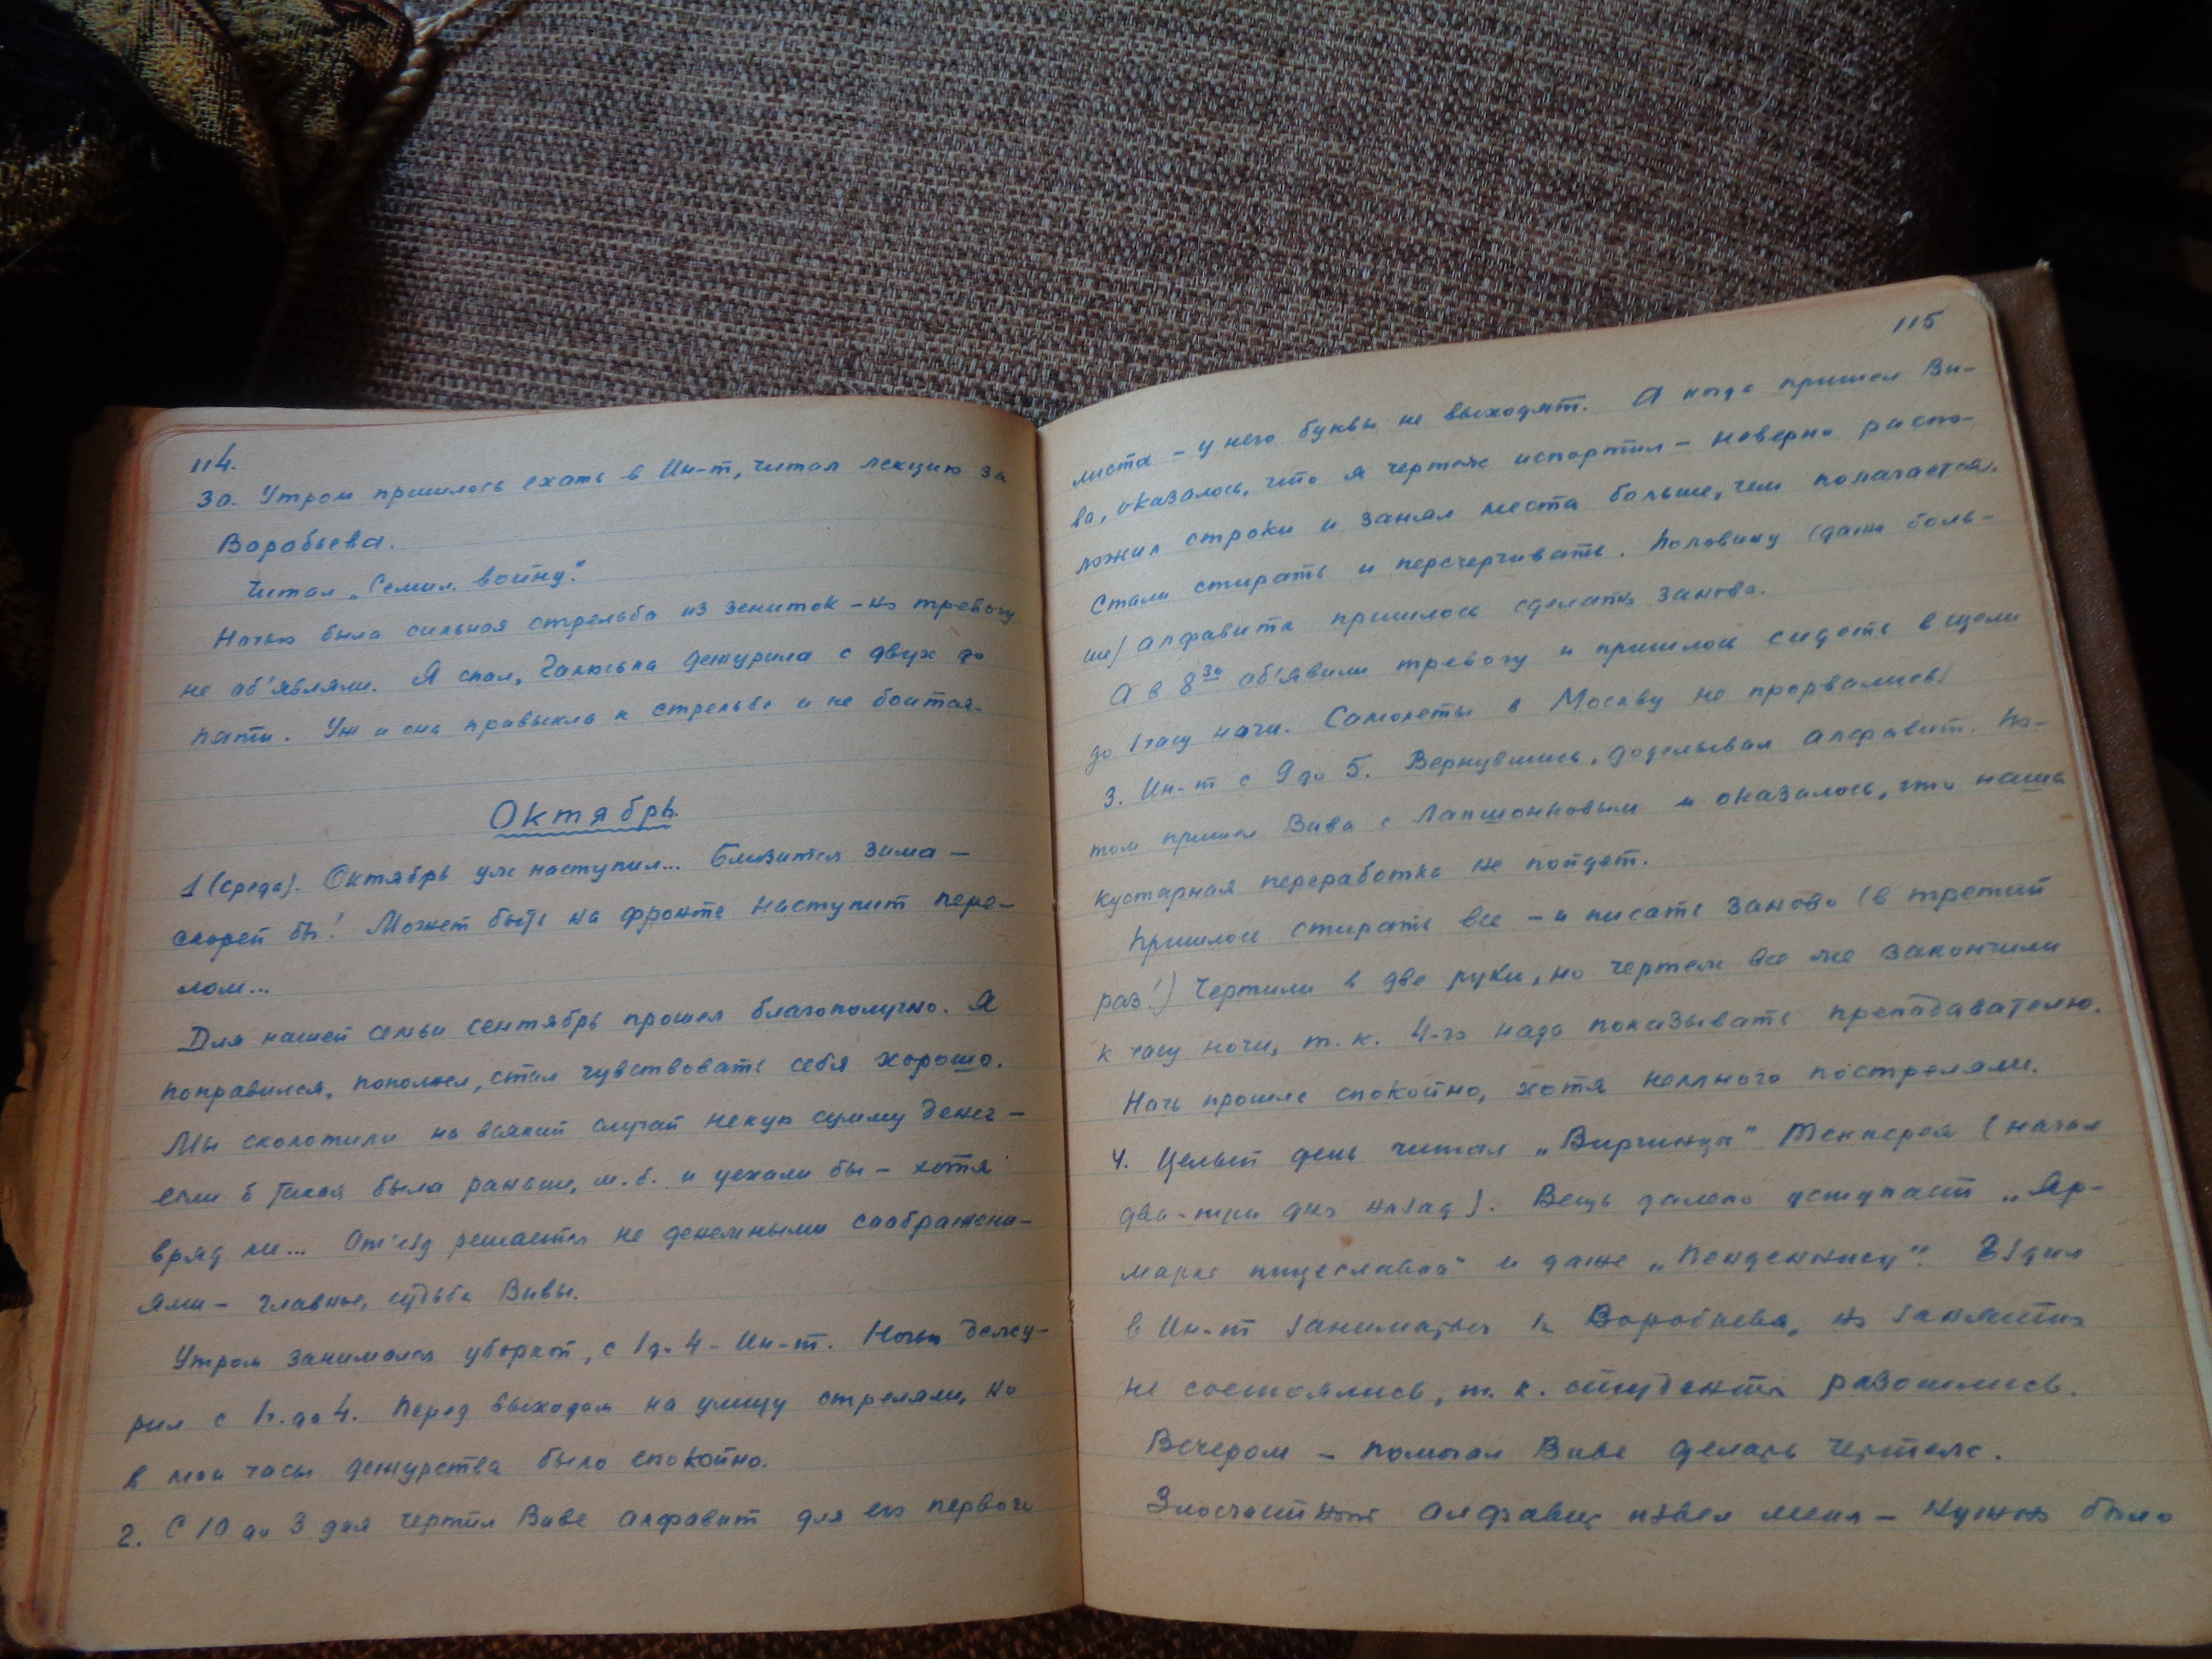 114.
30. Утром пришлось ехать в Ин-т, читал лекцию за
Воробьева.
Читал „Семил. войну."
Ночью была сильная стрельба из зениток – но тревогу
не об'являли. Я спал, Галюська дежурила с двух до
пяти. Уж и она привыкла к стрельбе и не боится.
Октябрь.
1 (среда). Октябрь уже наступил... Близится зима –
скорей бы! Может быть на фронте наступит пере-
лом...
Для нашей семьи сентябрь прошел благополучно. Я
поправился, пополнел, стал чувствовать себя хорошо.
Мы сколотили на всякий случай некую сумму денег –
если б такая была раньше, м.б. и уехали бы – хотя
вряд ли... От'езд решается не денежными соображени-
ями – главное, судьба Вивы.
Утром занимался уборкой, с 1 до 4 – Ин-т. Ночью дежу-
рил с 1 ч. до 4. Перед выходом на улицу стреляли, но
в мои часы дежурства было спокойно.
2. С 10 до 3 дня чертил Виве алфавит для его первого
115
листа – у него буквы не выходят. А когда пришел Ви-
ва, оказалось, что я чертеж испортил – неверно распо-
ложил строки и занял места больше, чем полагается.
Стали стирать и перечерчивать. Половину (даже боль-
ше) алфавита пришлось сделать заново.
А в 8 30 об'явили тревогу и пришлось сидеть в щели
до 1 часу ночи. Самолеты в Москву не прорвались!
3. Ин-т с 9 до 5. Вернувшись, доделывал алфавит. По-
том пришел Вива с Лапшонковым и оказалось, что наша
кустарная переработка не пойдет.
Пришлось стирать все – и писать заново (в третий
раз!) Чертили в две руки, но чертеж все же закончили
к часу ночи, т.к. 4-го надо показывать преподавателю.
Ночь прошла спокойно, хотя немного постреляли.
4. Целый день читал „Виргинцы" Теккерея (начал
два-три дня назад). Вещь далеко уступает „Яр-
марке тщеславия" и даже „Пенденнису". Ездил
в Ин-т заниматься за Воробьева, но занятия
не состоялись, т.к. студенты разошлись.
Вечером – помогал Виве делать чертеж.
Злосчастный алфавит извел меня – нужно было